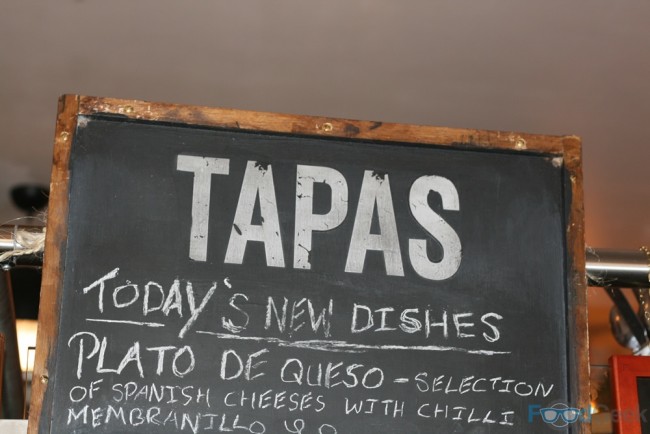 TAPAS
TODAY'S NEW DISHES
PLATO DE QUESO - SELECTION
OF SPANISH CHEESES WITH CHILLI
MEMBRANILLO